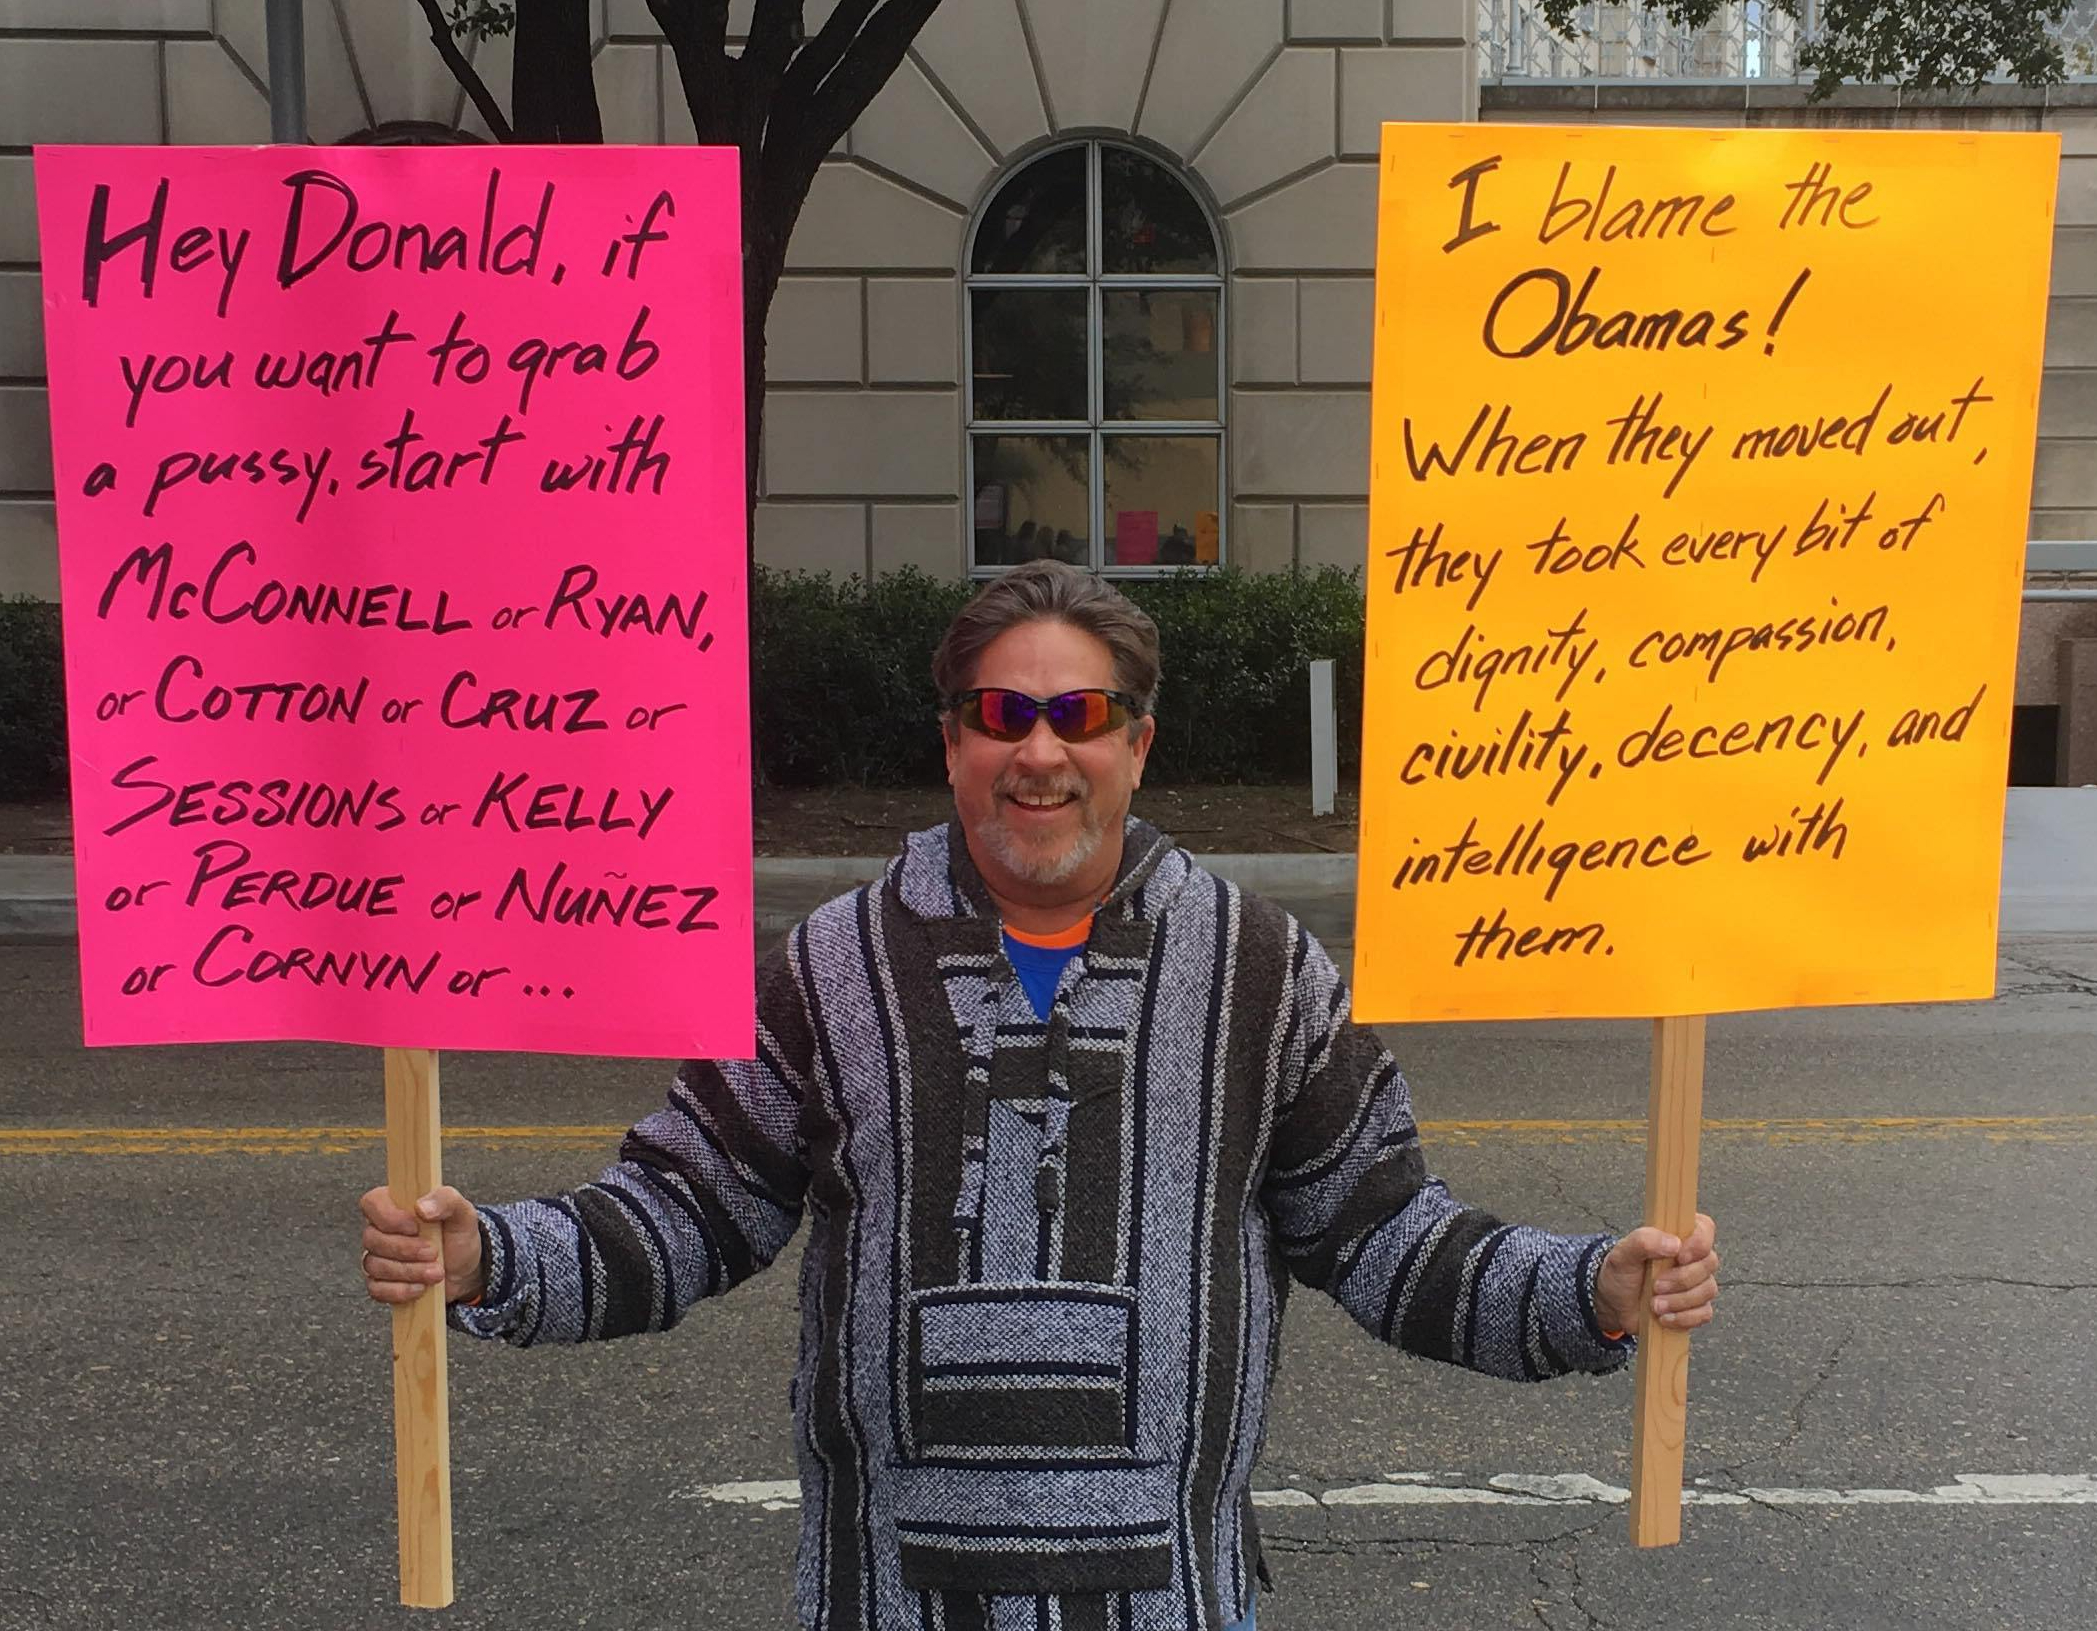 Hey Donald, if
you want to grab
a pussy, start with
McCONNELL or RYAN,
or COTTON or CRUZ or
SESSIONS or KELLY
or PERDUE or NUÑEZ
or CORNYN or ...
I blame the
Obamas!
When they moved out,
they took every bit of
dignity, compassion,
civility, decency, and
intelligence with
them.